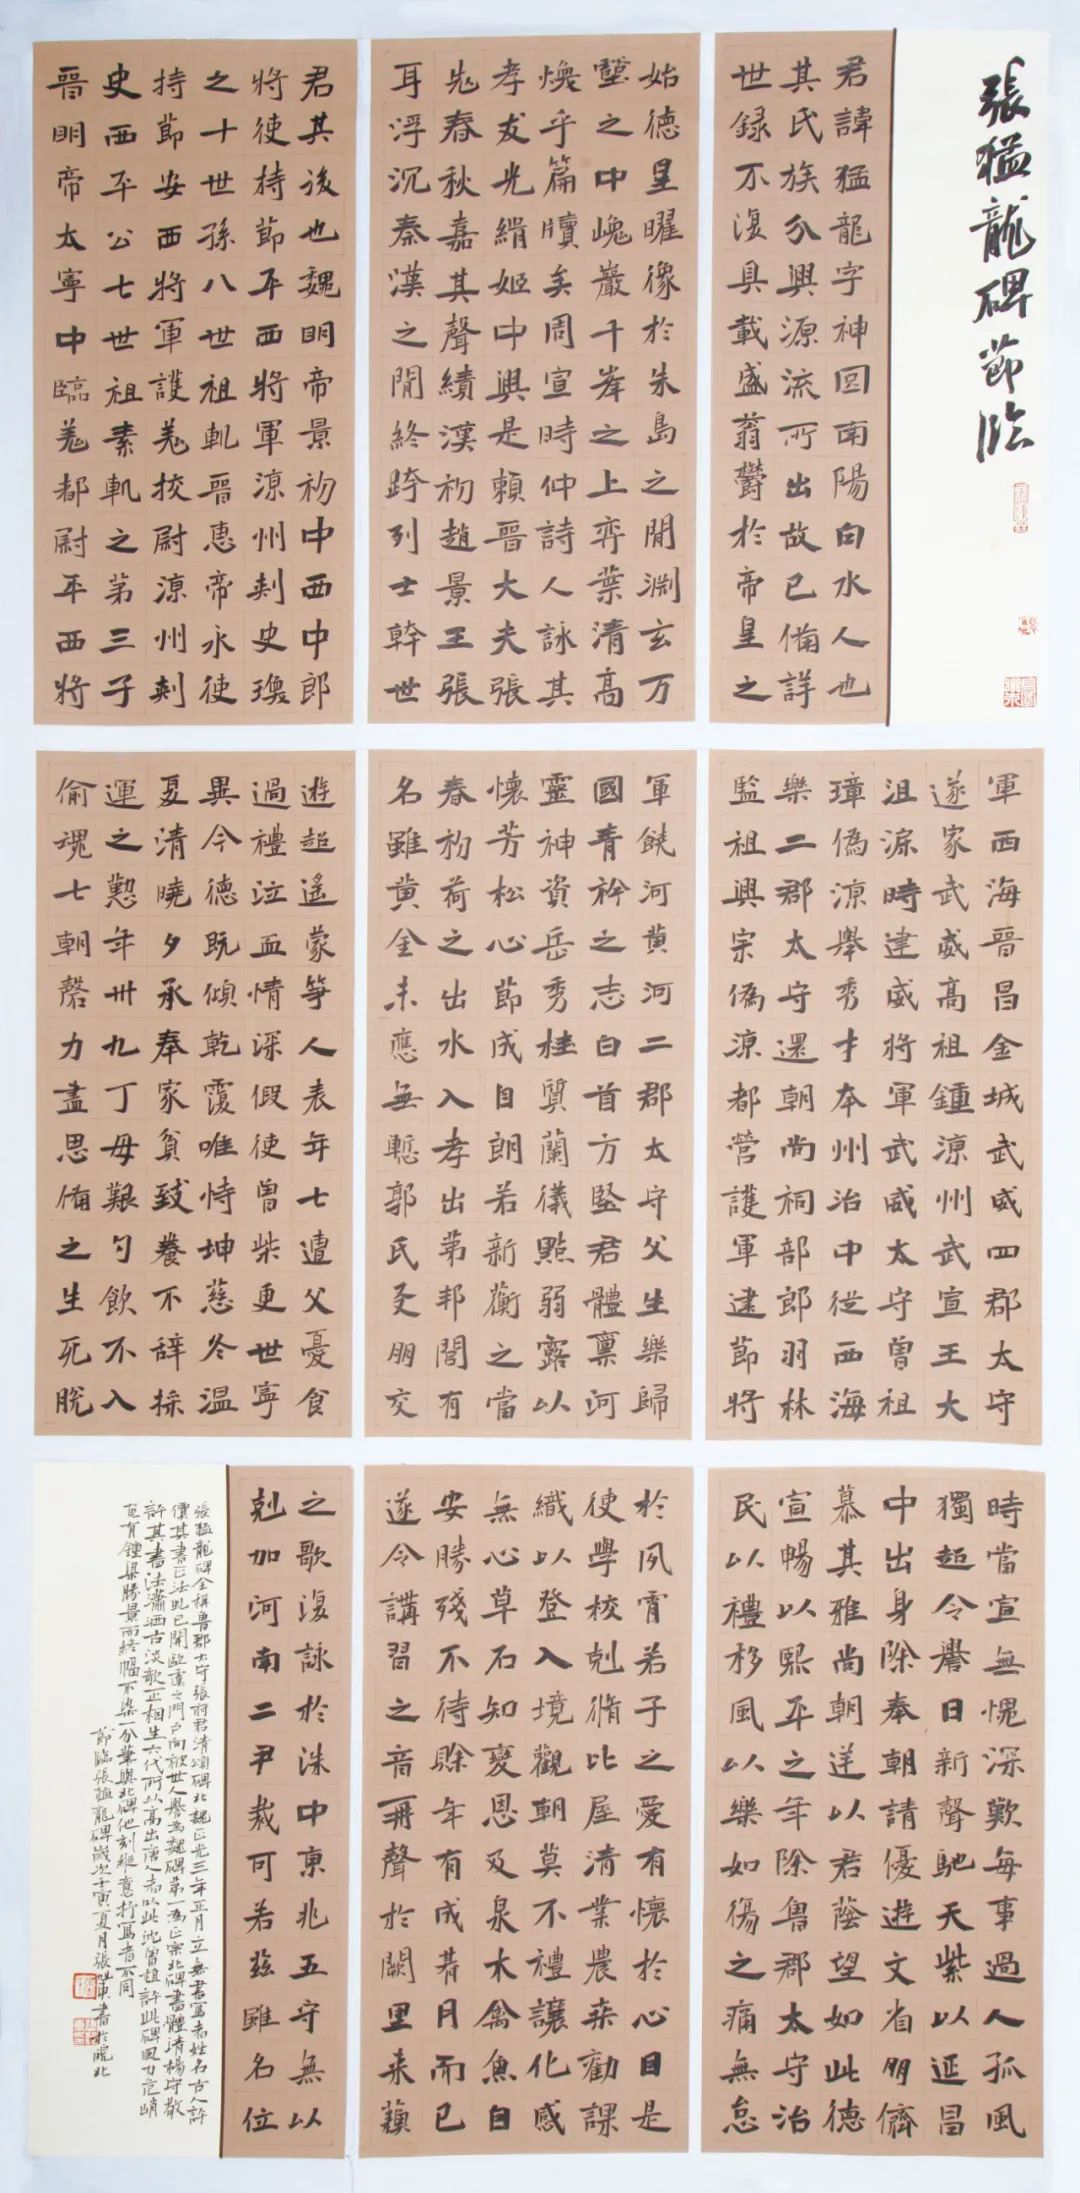 張猛龍碑節臨
君諱猛龍字神囧南陽白水人也
其氏族分興源流所出故已備詳
世録不復具載盛蓊鬱於帝皇之
始德星曜像於朱鳥之閒淵玄万
壑之中巉巖千峯之上弈葉清高
煥乎篇牘矣周宣時仲詩人詠其
孝友光緝姬中興是賴晉大夫張
老春秋嘉其聲績漢初趙景王張
耳浮沉秦漢之閒終跨列士幹世
君其後也魏明帝景初中西中郎
將使持節平西將軍涼州刺史瓊
之十世孫八世祖軌晉惠帝永使
持節安西將軍護羌挍尉涼州刺
史西平公七世祖素軌之第三子
晉明帝太寧中臨羌都尉平西將
軍西海晉昌金城武威四郡太守
遂家武威高祖鍾涼州武宣王大
沮渠時建威將軍武威太守曾祖
璋偽涼舉秀才本州治中從西海
樂二郡太守還朝尚祠部郎羽林
監祖興宗偽涼都營護軍建節將
軍饒河黄河二郡太守父生樂歸
國青衿之志白首方堅君體禀河
靈神資岳秀桂質蘭儀點弱露以
懷芳松心節成自朗若新蘅之當
春初荷之出水入孝出第邦閭有
名雖黄金未應無慙郭氏友朋交
遊超遙蒙筝人表年七遭父憂食
過禮泣血情深假使曾柴更世寧
異今德既傾乾覆唯恃坤慈冬温
夏清曉夕承奉家貧致養不辞採
運之懃年卅九丁母艱勺飲不入
偷魂七朝磬力盡思備之生死脫
時當宣無愧深歎每事過人孤風
獨超令譽日新聲馳天紫以延昌
中出身除奉朝請優遊文省朋儕
慕其雅尚朝送以君蔭望如此德
宣暢以熙平之年除魯郡太守治
民以禮移風以樂如傷之痛無怠
於夙宵若子之愛有懷於心目是
使學校剋脩比屋清業農桒勸課
織以登入境觀朝莫不禮讓化感
無心草石知變恩及泉木禽魚自
安勝殘不待賒年有成朞月而已
遂令講習之音再聲於闕里来蘓
之歌復詠於洙中東兆五守無以
剋加河南二尹裁可若兹雖名位
張猛龍碑全稱魯郡太守張府君清頌碑北魏正光三年正月立無書寫者姓名古人評
價其書正法虬已開歐虞之門戶向被世人譽為魏碑第一為正宗北碑書體清楊守敬
評其書法瀟洒古淡欹正相生六代所以高出唐人者以此沈曾植評此碑風力危峭
節臨張猛龍碑歲次壬寅夏月張